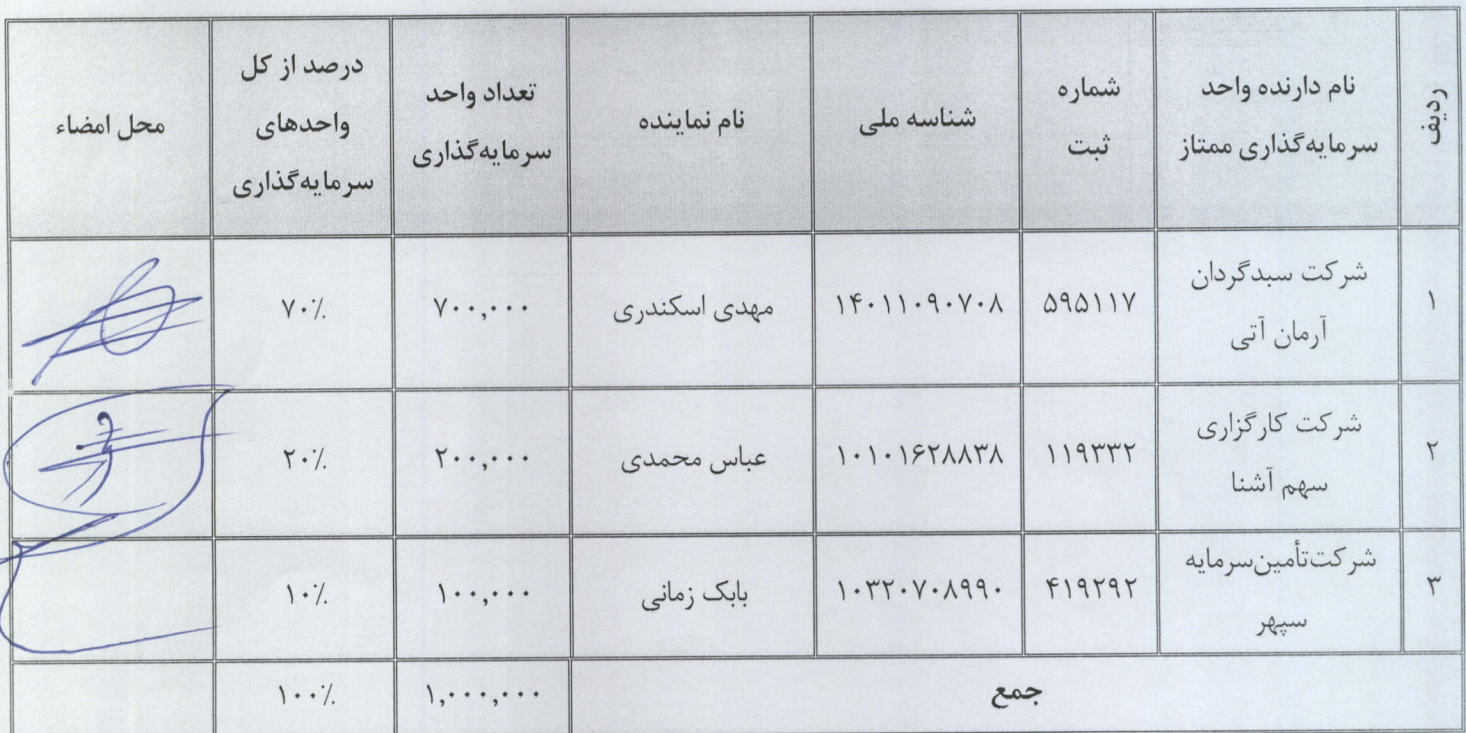 ردیف
نام دارنده واحد
سرمایه‌گذاری ممتاز
شماره
ثبت
شناسه ملی
نام نماینده
تعداد واحد
سرمایه‌گذاری
درصد از کل
واحدهای
سرمایه‌گذاری
محل امضاء
۱
شرکت سبدگردان
آرمان آتی
۵۹۵۱۱۷
۱۴۰۱۱۰۹۰۷۰۸
مهدی اسکندری
۷۰۰,۰۰۰
۷۰٪
۲
شرکت کارگزاری
سهم آشنا
۱۱۹۳۳۲
۱۰۱۰۱۶۲۸۸۳۸
عباس محمدی
۲۰۰,۰۰۰
۲۰٪
۳
شرکت‌تأمین‌سرمایه
سپهر
۴۱۹۲۹۲
۱۰۳۲۰۷۰۸۹۹۰
بابک زمانی
۱۰۰,۰۰۰
۱۰٪
جمع
۱,۰۰۰,۰۰۰
۱۰۰٪